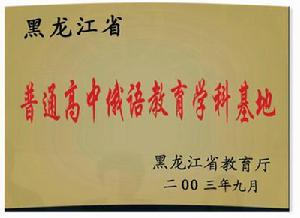 黑龙江省
普通高中俄语教育学科基地
黑龙江省教育厅
二00三年九月